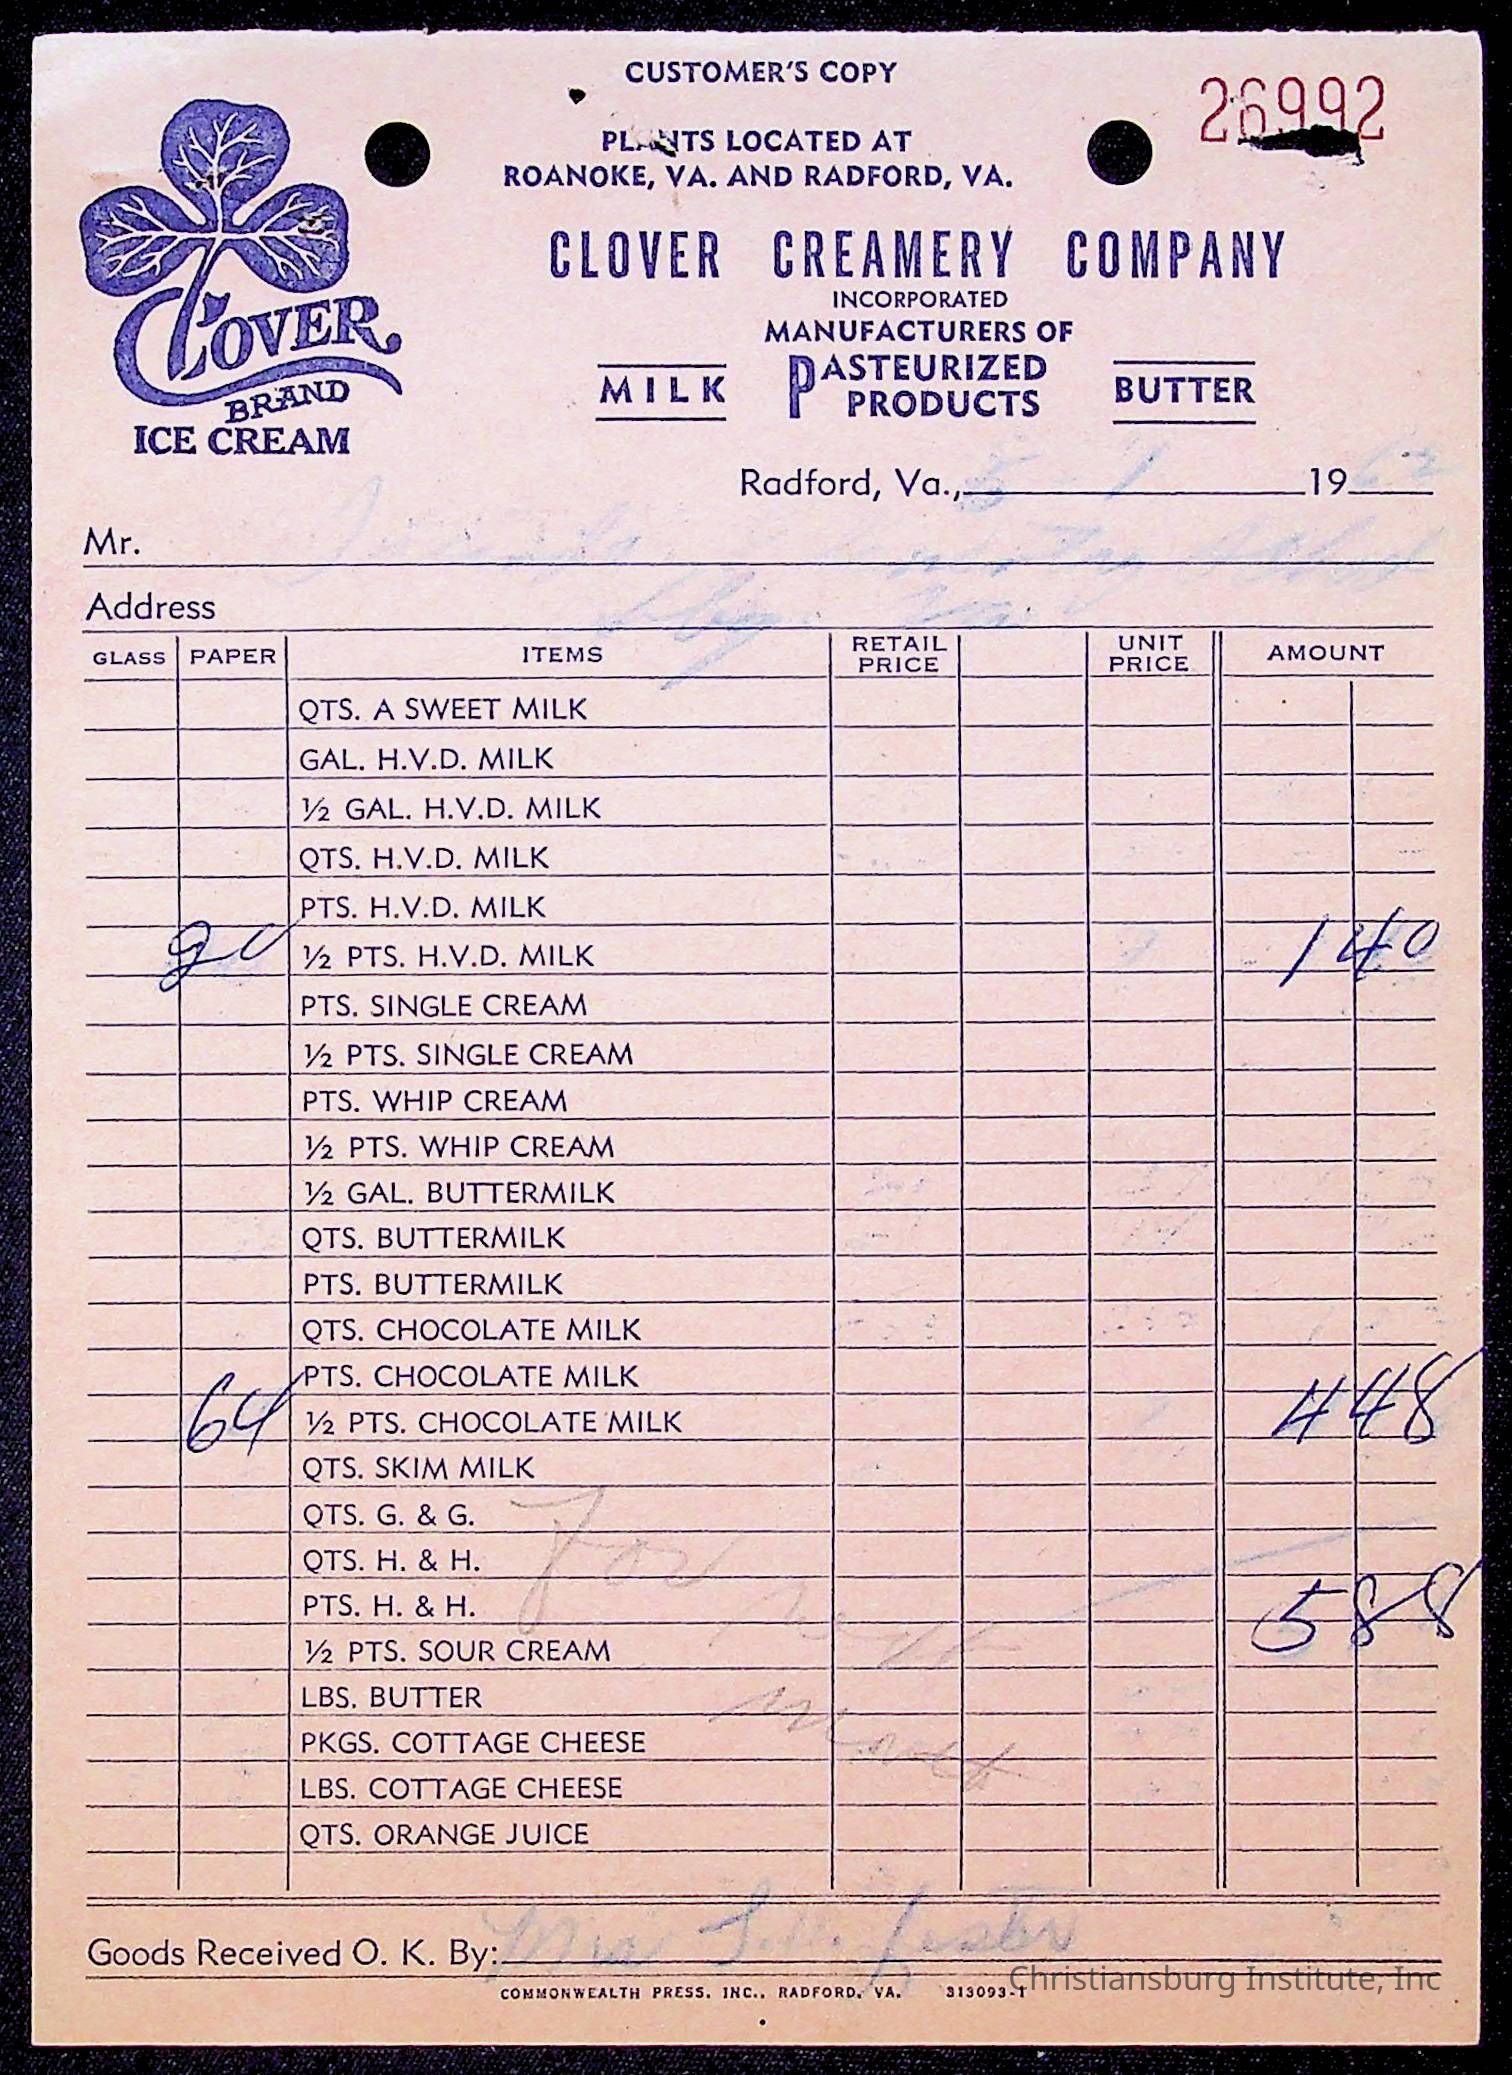 CUSTOMER'S COPY
26992
PLANTS LOCATED AT
ROANOKE, VA. AND RADFORD, VA.
CLOVER CREAMERY COMPANY
INCORPORATED
MANUFACTURERS OF
MILK PASTEURIZED PRODUCTS BUTTER
CLOVER
BRAND
ICE CREAM
Radford, Va., 5-1 1962
Mr.
Address Va.
GLASS PAPER ITEMS RETAIL PRICE UNIT PRICE AMOUNT
QTS. A SWEET MILK
GAL. H.V.D. MILK
½ GAL. H.V.D. MILK
QTS. H.V.D. MILK
PTS. H.V.D. MILK
20 ½ PTS. H.V.D. MILK 1 40
PTS. SINGLE CREAM
½ PTS. SINGLE CREAM
PTS. WHIP CREAM
½ PTS. WHIP CREAM
½ GAL. BUTTERMILK
QTS. BUTTERMILK
PTS. BUTTERMILK
QTS. CHOCOLATE MILK
PTS. CHOCOLATE MILK
64 ½ PTS. CHOCOLATE MILK 4 48
QTS. SKIM MILK
QTS. G. & G.
QTS. H. & H.
For
PTS. H. & H. 5 88
next
½ PTS. SOUR CREAM
LBS. BUTTER
PKGS. COTTAGE CHEESE
LBS. COTTAGE CHEESE
QTS. ORANGE JUICE
Goods Received O. K. By: Lester
COMMONWEALTH PRESS, INC., RADFORD, VA. 313093-1
Christiansburg Institute, Inc